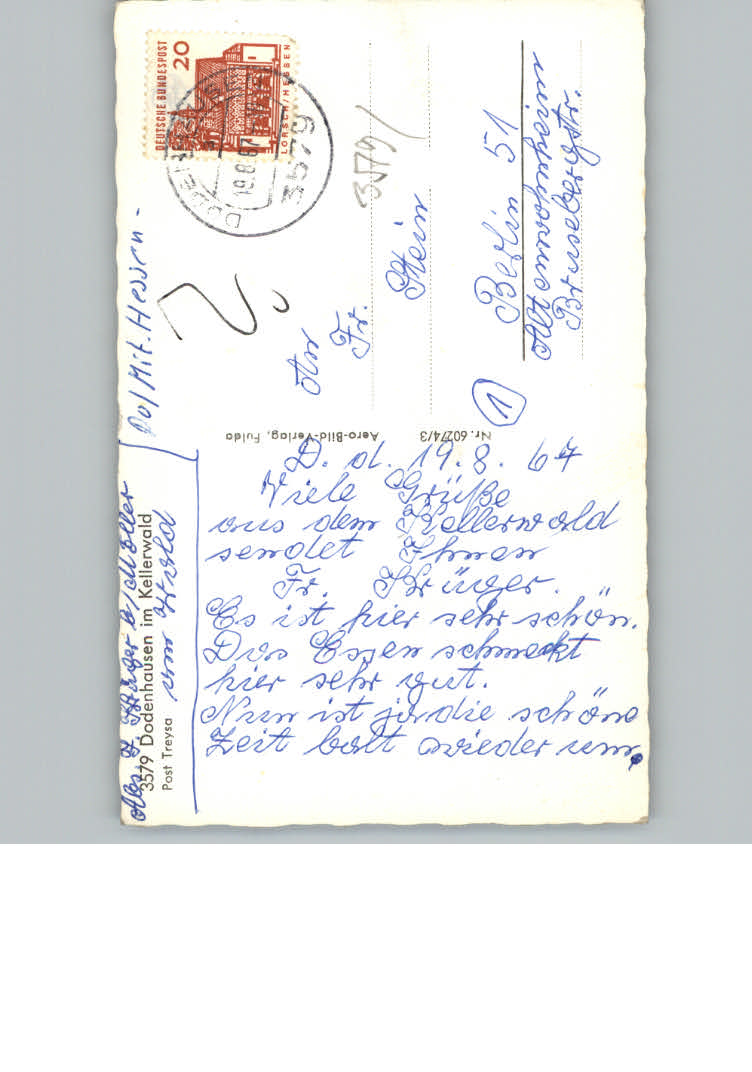 D. d. 19.8.67
Viele Grüße
aus dem Kellerwald
sendet Ihnen
Fr. Krüger.
Es ist hier sehr schön.
Das Essen schmeckt
hier sehr gut.
Nun ist ja die schöne
Zeit balt wieder um.
Abs. F. Krüger b/ Möller
3579 Dodenhausen im Kellerwald
Post Treysa
am Wald
Mit. Hessen-
Nr. 60274/3
Aero-Bild-Verlag, Fulda
DEUTSCHE BUNDESPOST
20
LORSCH/HESSEN
19.8.67
3579
3579/
An
Fr. Stein
1
Berlin 51
Altenwohnheim